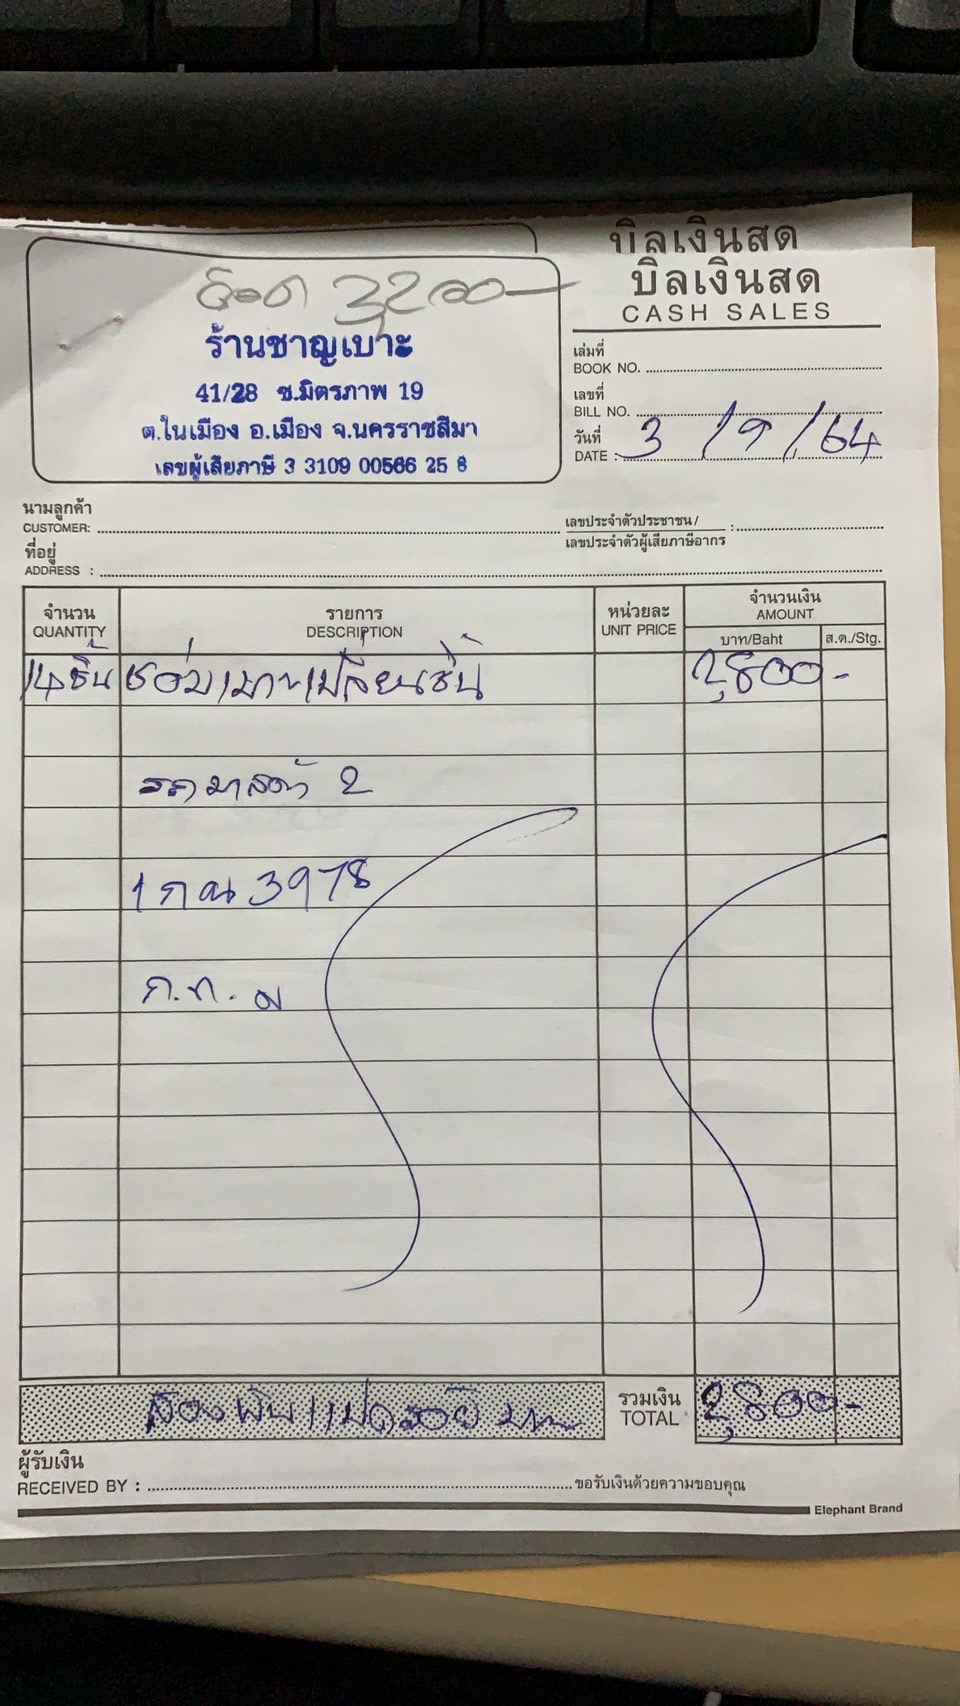 บิลเงินสด
บิลเงินสด
CASH SALES
ยอด 3,200-
ร้านชาญเบาะ
41/28 ซ.มิตรภาพ 19
ต.ในเมือง อ.เมือง จ.นครราชสีมา
เลขผู้เสียภาษี 3 3109 00566 25 8
เล่มที่
BOOK NO.
เลขที่
BILL NO.
วันที่
DATE : 3 / 9 / 64
นามลูกค้า
CUSTOMER:
เลขประจำตัวประชาชน/
เลขประจำตัวผู้เสียภาษีอากร :
ที่อยู่
ADDRESS :
จำนวน รายการ หน่วยละ จำนวนเงิน
QUANTITY DESCRIPTION UNIT PRICE AMOUNT
บาท/Baht ส.ต./Stg.
14 ชิ้น ซ่อมเบาะเปลี่ยนชิ้น 2,800 -
รถมาสด้า 2
1 กณ 3978
ก.ท.ม
สองพันแปดร้อยบาท รวมเงิน 2,800 -
TOTAL
ผู้รับเงิน
RECEIVED BY : ขอรับเงินด้วยความขอบคุณ
Elephant Brand